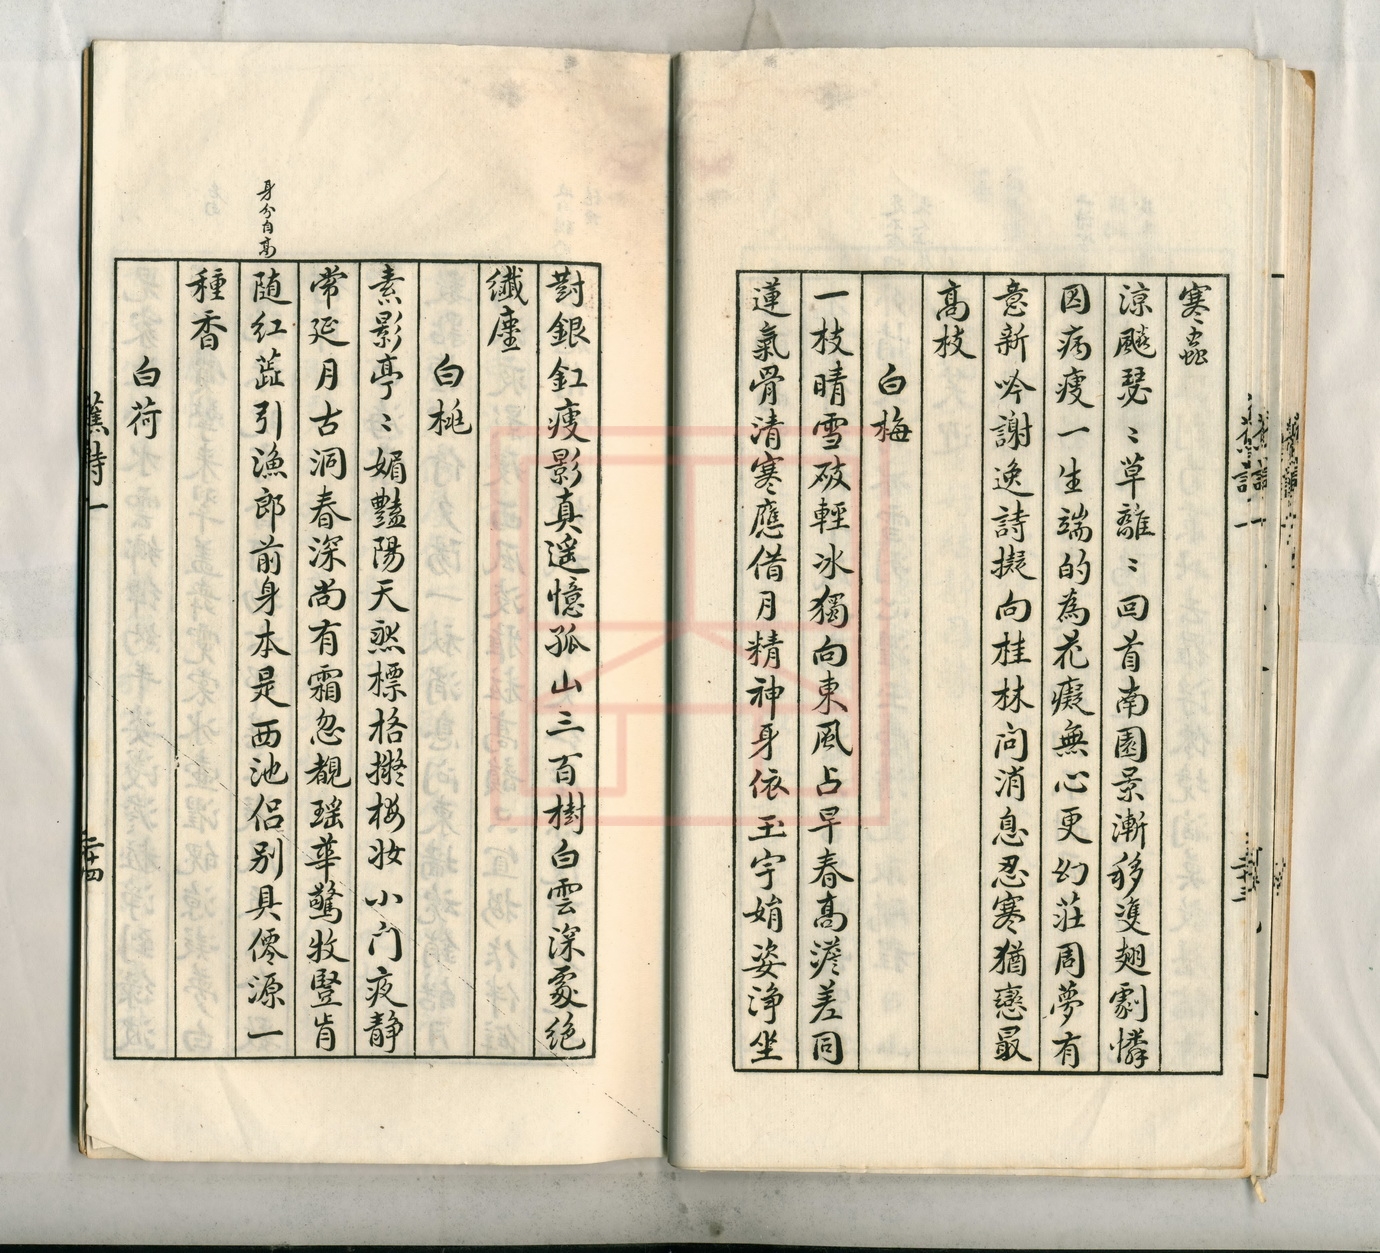 寒蟲
涼颸瑟〻草離〻回首南園景漸移隻翅劇憐
因病瘦一生端的為花癡無心更幻莊周夢有
意新吟謝逸詩擬向桂林问消息忍寒猶戀最
高枝
白梅
一枝晴雪破輕冰獨向東風占早春高澹差同
蓮氣骨清寒應借月精神身依玉宇娟姿浄坐
對銀釭瘦影真遥憶孤山三百樹白雲深處絶
纖塵
白桃
素影亭〻媚豔陽天然標格擬梅妝小门夜静
常延月古洞春深尚有霜忽覩瑶華驚牧豎肯
随紅蕋引漁郎前身本是西池侣别具僊源一
身分自高
種香
白荷
蕉詩一
二十四